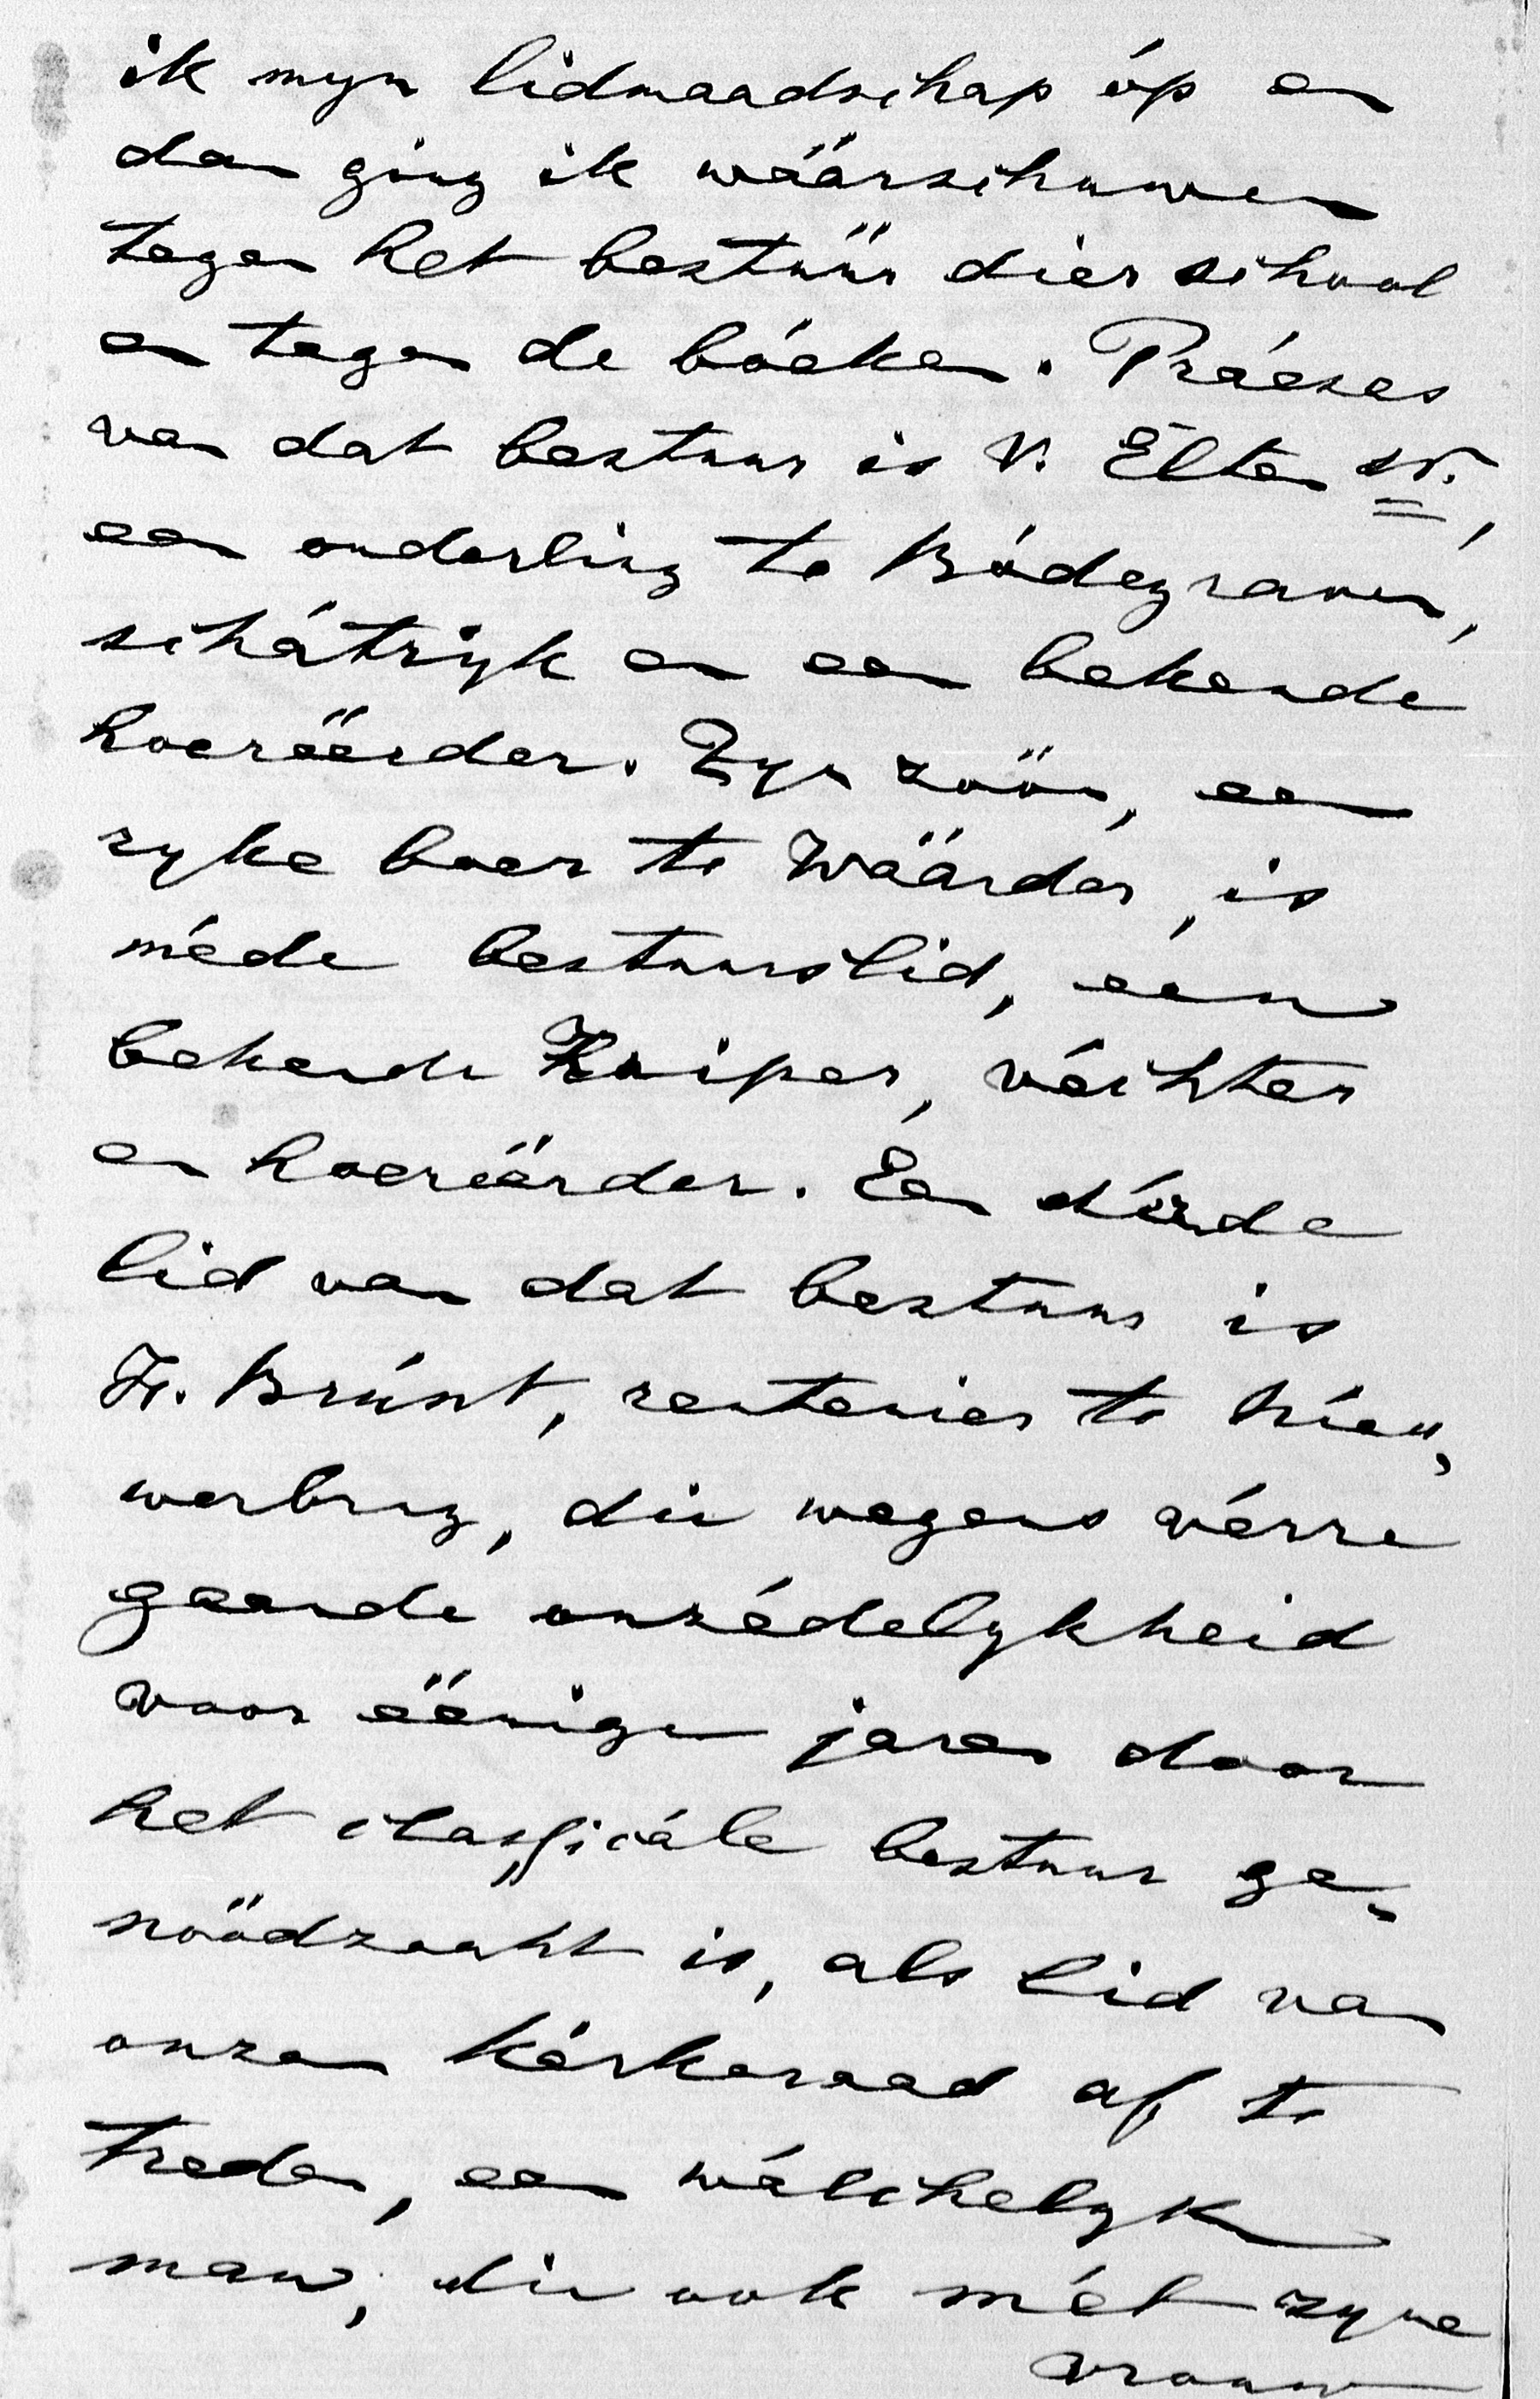 ik myn lidmaadschap óp en
dan ging ik wáárschuwen
tegen het bestúúr dier school
en tegen de bóeken. Práeses
van dat bestuur is V. Elten Sr.,
een ouderling te Bódegraven,
schátryk en een bekende
hoeréérder. Zyn zóón, een
ryke boer te Wáárder, is
méde bestuurslid, één
bekende Knijper, véchter
en hoeréérder. Een dérde
lid van dat bestuur is
H. Brúnt, rentenier te Nieu„
werbrug, die wegens vérre
gaande onzédelykheid
voor éénige jaren door
het classicále bestuur ge„
nóódzaakt is, als lid van
onzen kérkeraad af te
treden, een wálchelyk
man, die ook mét zyne
vrouw